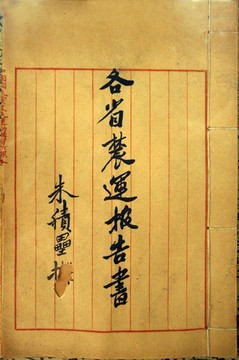 各省農運报告書
朱積壘